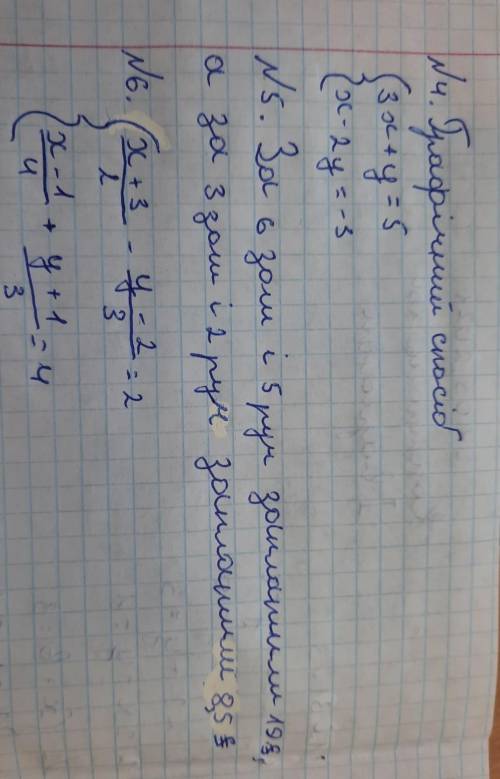 №4. Графічний спосіб
{3x + y = 5
{x - 2y = -3
№5. За 6 зош і 5 руч заплатили 19 ₴,
а за 3 зош і 2 руч заплатили 8,5 ₴
№6. {(x + 3)/2 - (y - 2)/3 = 2
{(x - 1)/4 + (y + 1)/3 = 4